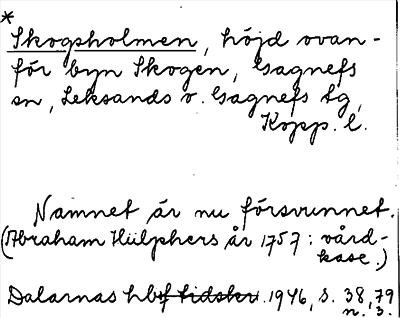 *
Skogsholmen, höjd ovan-
för byn Skogen, Gagnefs
sn, Leksands o. Gagnefs tg,
Kopp. l.
Namnet är nu försvunnet.
(Abraham Hülphers år 1757: vård-
kase.)
Dalarnas hbf tidskr. 1946, s. 38, 79
n. 3.